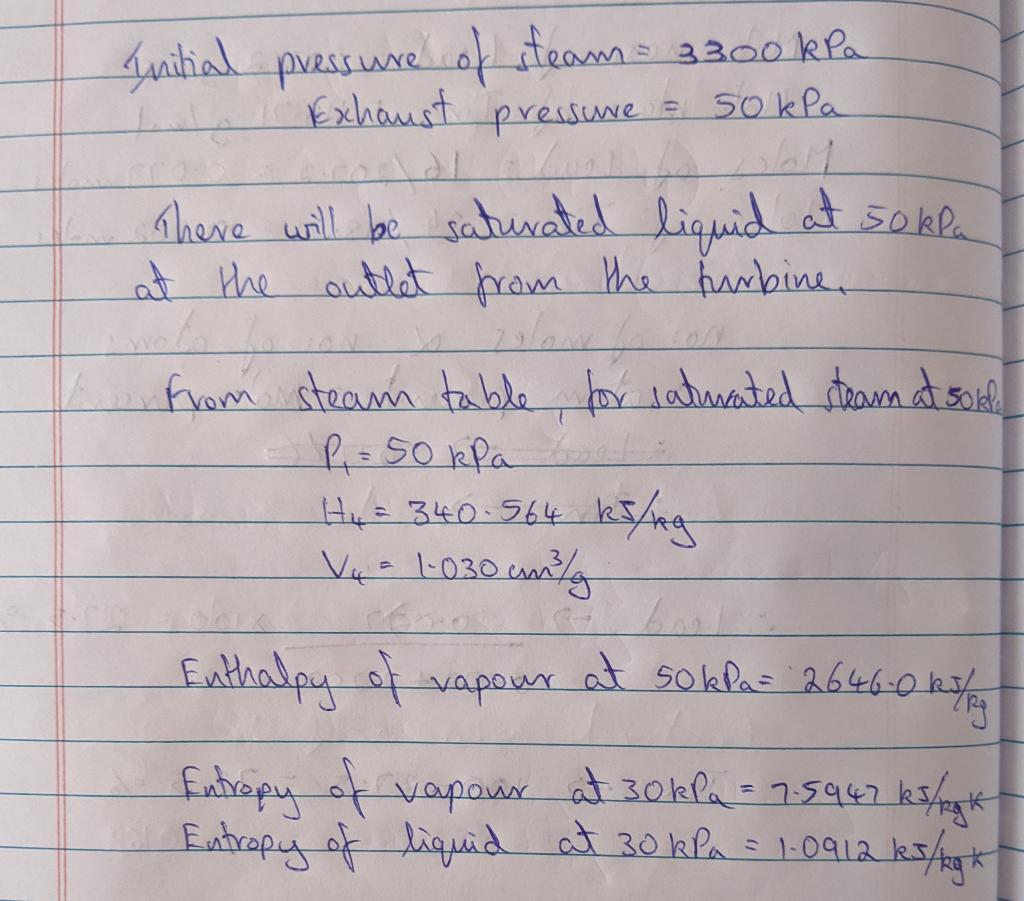 Initial pressure of steam = 3300 kPa
Exhaust pressure = 50 kPa
There will be saturated liquid at 50 kPa
at the outlet from the turbine.
From steam table, for saturated steam at 50 kPa
P₁ = 50 kPa
H₄ = 340.564 kJ/kg
V₄ = 1.030 cm³/g
Enthalpy of vapour at 50 kPa = 2646.0 kJ/kg
Entropy of vapour at 30 kPa = 7.5947 kJ/kg K
Entropy of liquid at 30 kPa = 1.0912 kJ/kg K